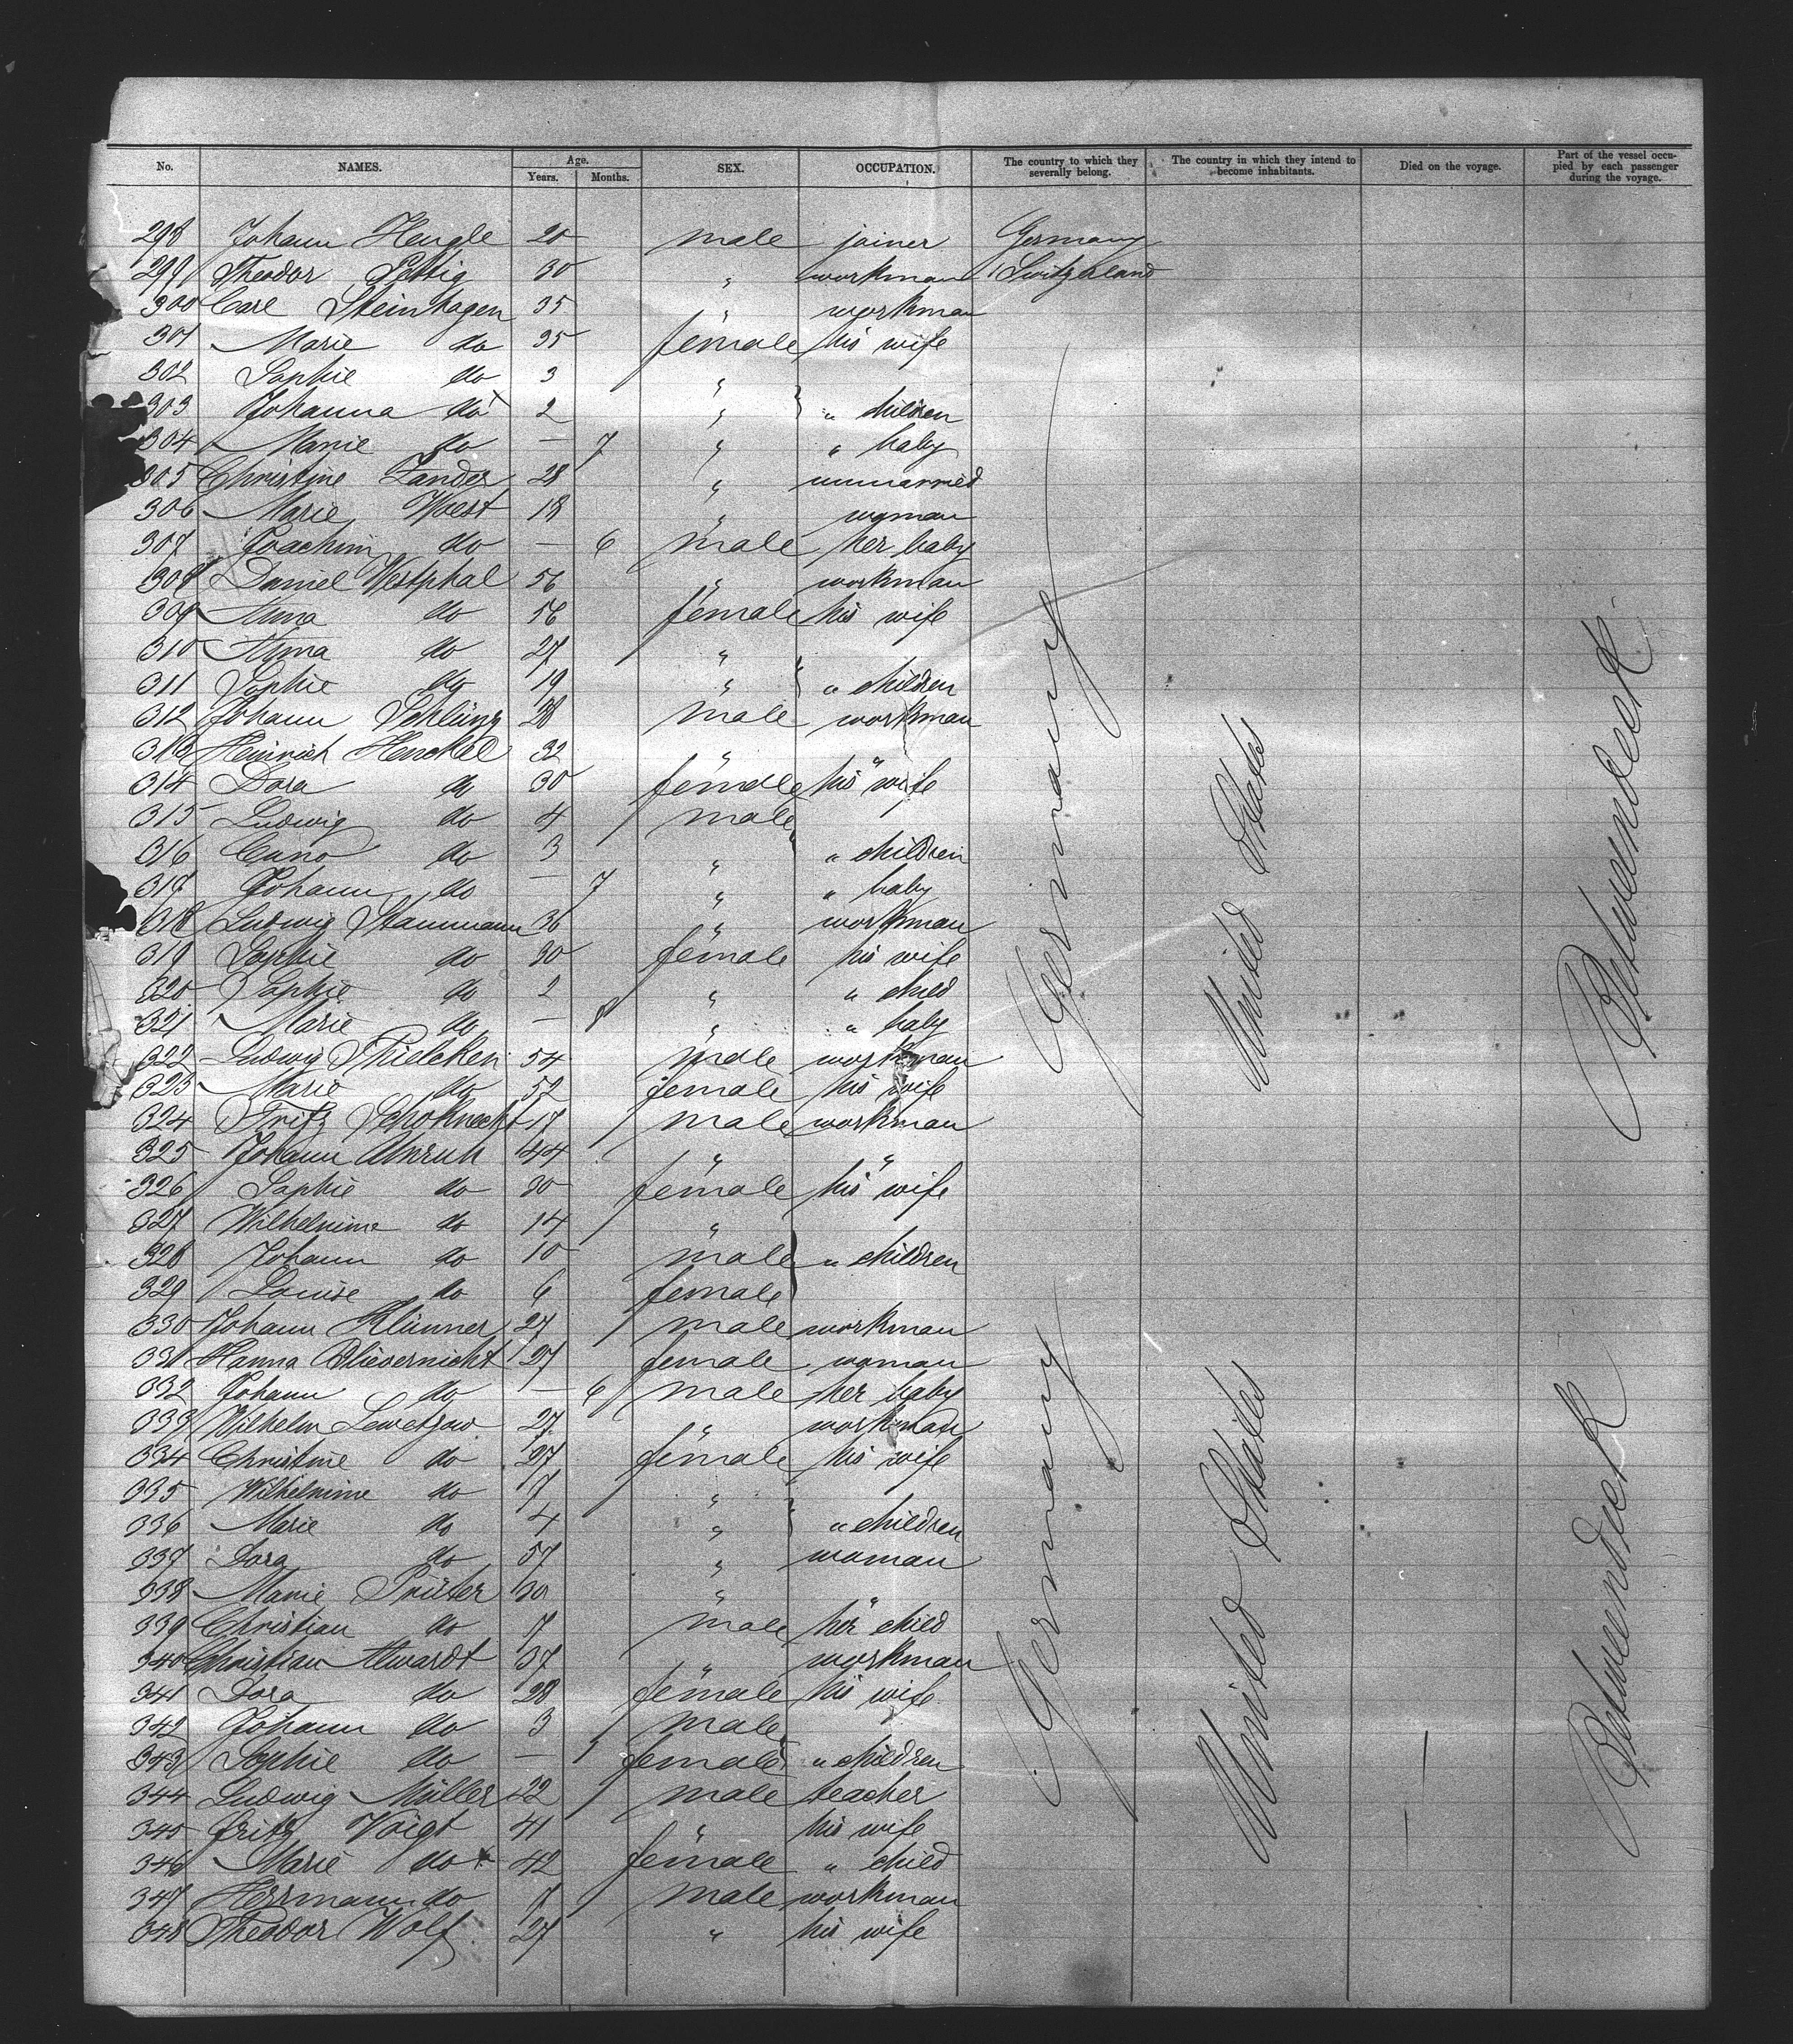 No. NAMES. Age. Years. Months. SEX. OCCUPATION. The country to which they severally belong. The country in which they intend to become inhabitants. Died on the voyage. Part of the vessel occupied by each passenger during the voyage.
298 Johann Hengle 20 male joiner Germany
299 Theodor 30 " workman Switzerland
300 Carl Steinhagen 35 " workman
301 Marie do 35 female his wife
302 Sophie do 3 "
303 Johanna do 2 " " children
304 Marie do — 7 " " baby
305 Christine Zander 28 " unmarried
306 Marie 18 " woman
307 Joachim do — 6 male her baby
308 Daniel Westphal 56 " workman
309 Anna do 56 female his wife
310 do 27 "
311 Sophie do 19 " " children
312 Johann Schlünz 28 male workman
313 Heinrich Henckel 32 " "
314 Dora do 30 female his wife
315 Ludwig do 4 male
316 Cuno do 3 " " children
317 Johann do — 7 " " baby
318 Ludwig Stammann 36 " workman
319 Sophie do 30 female his wife
320 Sophie do 2 " " child
321 Marie do — 8 " " baby
322 Ludwig Thielcken 54 male workman
323 Marie do 52 female his wife
324 Fritz Schoknecht 17 male workman
325 Johann Unruh 44 " "
326 Sophie do 30 female his wife
327 Wilhelmine do 14 "
328 Johann do 10 male " children
329 Louise do 6 female
330 Johann Klünner 27 male workman
331 Hanna Blievernicht 27 female woman
332 Johann do — 6 male her baby
333 Wilhelm Lewetzow 27 " workman
334 Christine do 27 female his wife
335 Wilhelmine do 7 "
336 Marie do 4 " " children
337 Dora do 57 " woman
338 Marie Prüter 30 " "
339 Christian do 7 male her child
340 Christian Alwardt 37 " workman
341 Dora do 28 female his wife
342 Johann do 3 male
343 Sophie do — female " children
344 Ludwig Müller 22 male teacher
345 Fritz Voigt 41 " his wife
346 Marie do 42 female " child
347 Herrmann do 7 male workman
348 Theodor Wolf 27 " his wife
Germany
United States
Betweendeck
Germany
United States
Betweendeck